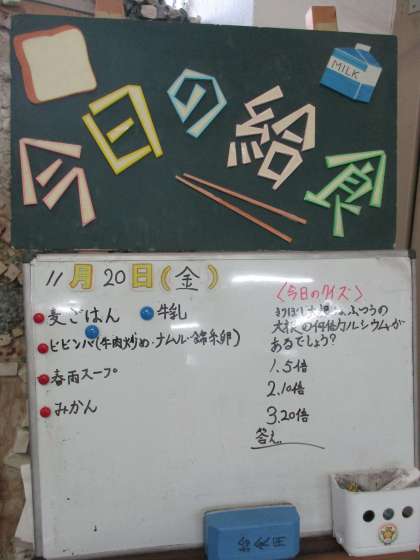 今日の給食
MILK
11月20日(金)
麦ごはん 牛乳
ビビンバ(牛肉炒め・ナムル・錦糸卵)
春雨スープ
みかん
〈今日のクイズ〉
切り干し大根は、ふつうの
大根の何倍カルシウムが
あるでしょう?
1.5倍
2.10倍
3.20倍
答え